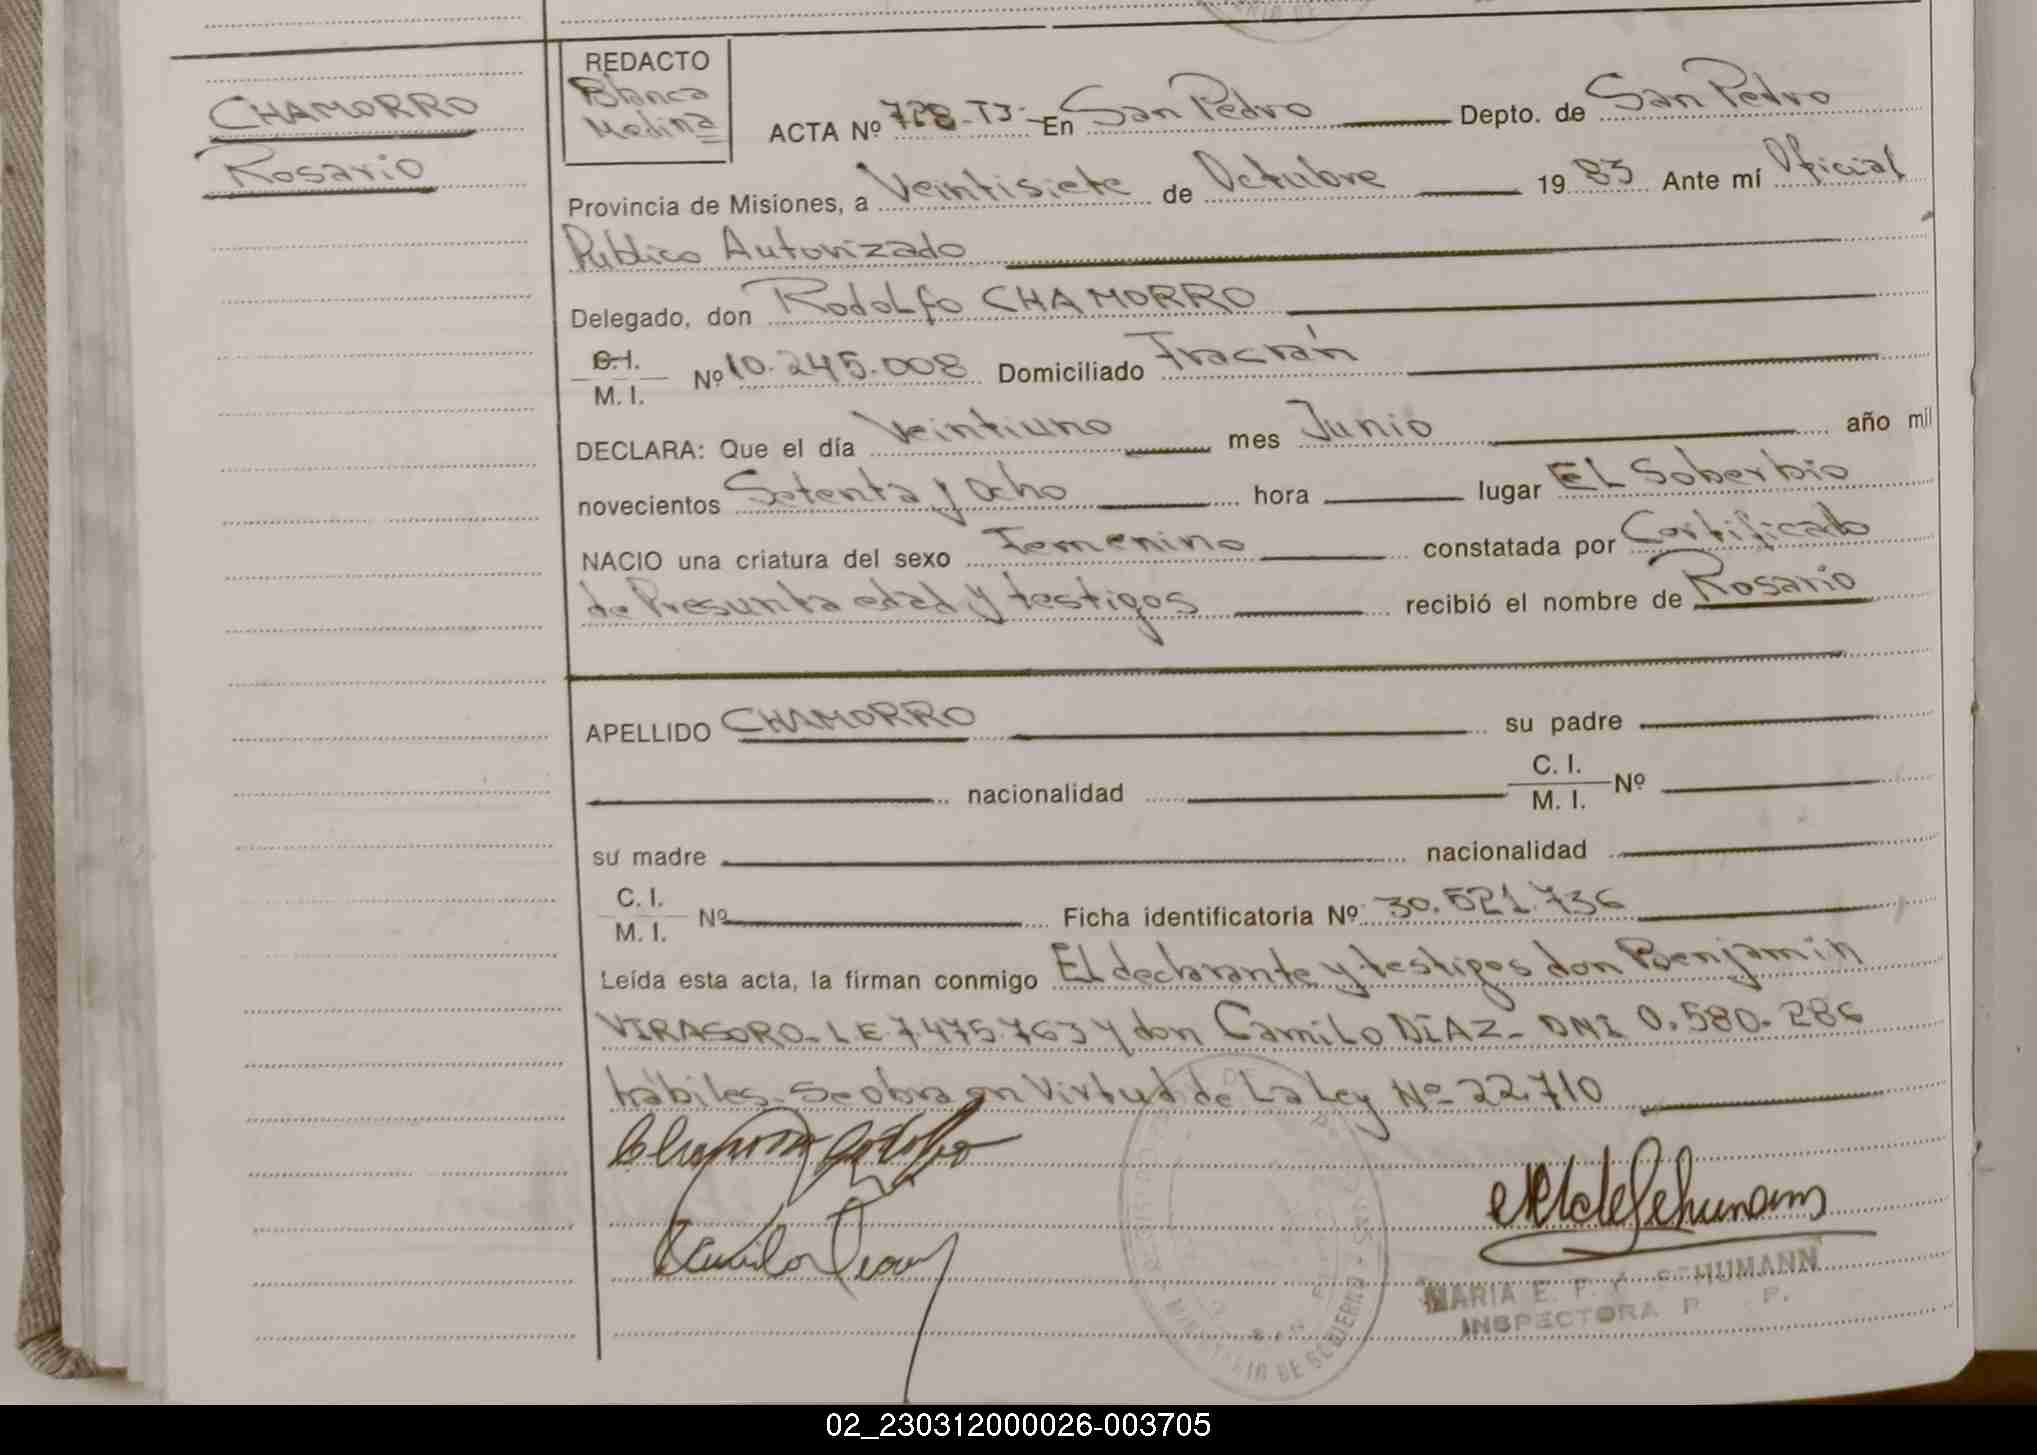 CHAMORRO
Rosario
REDACTO
Blanca
Medina
ACTA Nº 728-T3- En San Pedro Depto. de San Pedro
Provincia de Misiones, a Veintisiete de Octubre 19 83 Ante mí Oficial
Público Autorizado
Delegado, don Rodolfo CHAMORRO
C.I.
M. I. Nº 10.245.008 Domiciliado Fracrán
DECLARA: Que el día Veintiuno mes Junio año mil
novecientos Setenta y Ocho hora lugar EL Soberbio
NACIO una criatura del sexo Femenino constatada por Certificado
de Presunta edad y testigos recibió el nombre de Rosario
APELLIDO CHAMORRO su padre
nacionalidad C. I. M. I. Nº
su madre nacionalidad
C. I.
M. I. Nº Ficha identificatoria Nº 30.521.736
Leída esta acta, la firman conmigo El declarante y testigos don Benjamín
VIRASORO- L.E. 7.475.763 y don Camilo DÍAZ- DNI 0.580.286
hábiles- Se obra en Virtud de La Ley Nº 22.710
Chamorro Rodolfo
MINISTERIO DE GOBIERNO
MARIA E. F. SCHUMANN
INSPECTORA
02_230312000026-003705